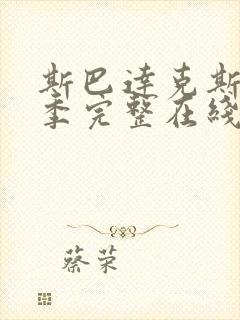 斯巴达克斯
季完整在线
蔡荣